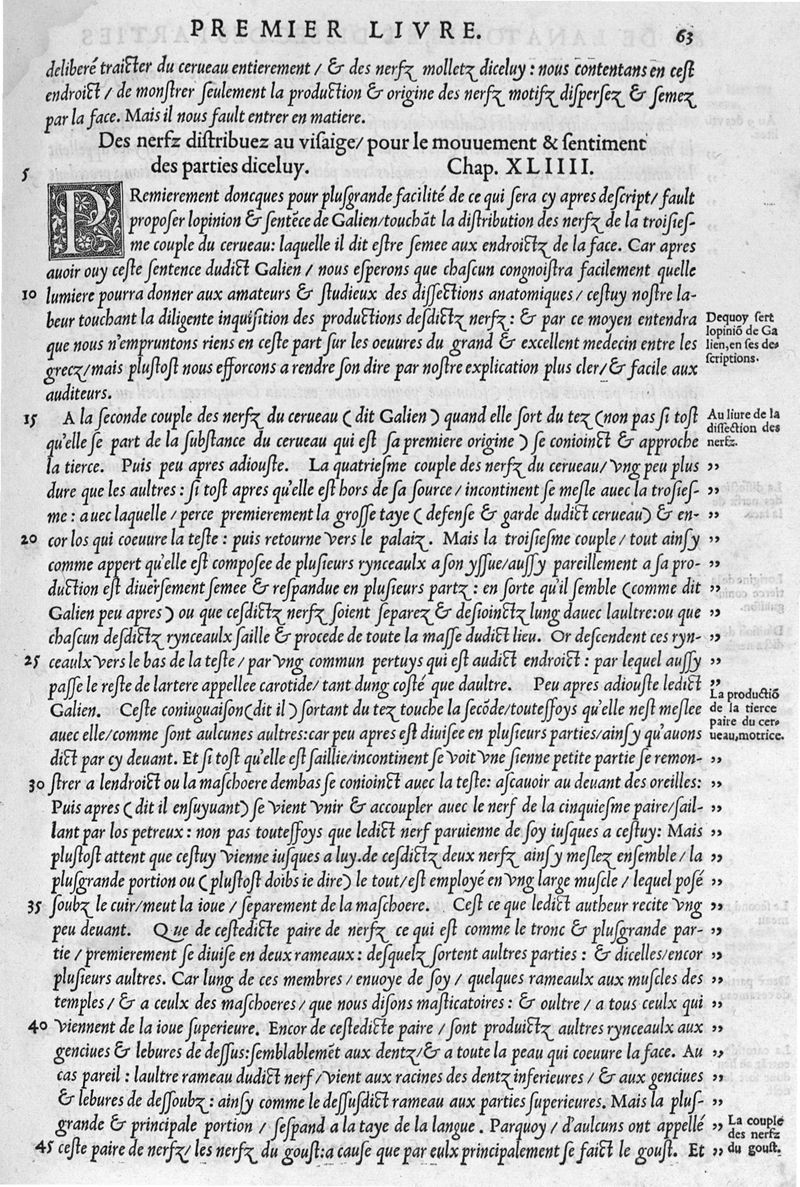 PREMIER LIVRE. 63
deliberé traicter du cerueau entierement / & des nerfz molletz diceluy : nous contentans en cest
endroict / de monstrer seulement la production & origine des nerfz motifz dispersez & semez
par la face. Mais il nous fault entrer en matiere.
Des nerfz distribuez au visaige / pour le mouuement & sentiment
5 des parties diceluy. Chap. XLIIII.
PRemierement doncques pour plusgrande facilité de ce qui sera cy apres descript / fault
proposer lopinion & sentẽce de Galien / touchãt la distribution des nerfz de la troisies-
me couple du cerueau: laquelle il dit estre semee aux endroictz de la face. Car apres
auoir ouy ceste sentence dudict Galien / nous esperons que chascun congnoistra facilement quelle
10 lumiere pourra donner aux amateurs & studieux des dissections anatomiques / cestuy nostre la-
beur touchant la diligente inquisition des productions desdictz nerfz : & par ce moyen entendra
que nous n'empruntons riens en ceste part sur les oeuures du grand & excellent medecin entre les
grecz / mais plustost nous efforcons a rendre son dire par nostre explication plus cler / & facile aux
auditeurs.
Dequoy sert
lopiniõ de Ga
lien, en ses de-
scriptions.
15 A la seconde couple des nerfz du cerueau ( dit Galien ) quand elle sort du tez ( non pas si tost
qu'elle se part de la substance du cerueau qui est sa premiere origine ) se conioinct & approche
la tierce. Puis peu apres adiouste. La quatriesme couple des nerfz du cerueau / vng peu plus ,,
dure que les aultres : si tost apres qu'elle est hors de sa source / incontinent se mesle auec la trosies- ,,
me : auec laquelle / perce premierement la grosse taye ( defense & garde dudict cerueau ) & en- ,,
20 cor los qui coeuure la teste : puis retourne vers le palaiz. Mais la troisiesme couple / tout ainsy ,,
comme appert qu'elle est composee de plusieurs rynceaulx a son yssue / aussy pareillement a sa pro- ,,
duction est diuersement semee & respandue en plusieurs partz : en sorte qu'il semble ( comme dit ,,
Galien peu apres ) ou que cesdictz nerfz soient separez & desioinctz lung dauec laultre: ou que ,,
chascun desdictz rynceaulx saille & procede de toute la masse dudict lieu. Or descendent ces ryn- ,,
25 ceaulx vers le bas de la teste / par vng commun pertuys qui est audict endroict : par lequel aussy ,,
passe le reste de lartere appellee carotide / tant dung costé que daultre. Peu apres adiouste ledict ,,
Galien. Ceste coniuguaison ( dit il ) sortant du tez touche la secõde / toutesfoys qu'elle nest meslee
auec elle / comme sont aulcunes aultres: car peu apres est diuisee en plusieurs parties / ainsy qu'auons
dict par cy deuant. Et si tost qu'elle est saillie / incontinent se voit vne sienne petite partie se remon- ,,
30 strer a lendroict ou la maschoere dembas se conioinct auec la teste: ascauoir au deuant des oreilles: ,,
Puis apres ( dit il ensuyuant ) se vient vnir & accoupler auec le nerf de la cinquiesme paire / sail- ,,
lant par los petreux : non pas toutesfoys que ledict nerf paruienne de soy iusques a cestuy: Mais ,,
plustost attent que cestuy vienne iusques a luy. de cesdictz deux nerfz ainsy meslez ensemble / la ,,
plusgrande portion ou ( plustost doibs ie dire ) le tout / est employé en vng large muscle / lequel posé ,,
35 soubz le cuir / meut la ioue / separement de la maschoere. Cest ce que ledict autheur recite vng ,,
peu deuant. Que de cestedicte paire de nerfz ce qui est comme le tronc & plusgrande par- ,,
tie / premierement se diuise en deux rameaux : desquelz sortent aultres parties : & dicelles / encor ,,
plusieurs aultres. Car lung de ces membres / enuoye de soy / quelques rameaulx aux muscles des ,,
temples / & a ceulx des maschoeres / que nous disons masticatoires : & oultre / a tous ceulx qui ,,
40 viennent de la ioue superieure. Encor de cestedicte paire / sont produictz aultres rynceaulx aux ,,
genciues & lebures de dessus: semblablemẽt aux dentz / & a toute la peau qui coeuure la face. Au ,,
cas pareil : laultre rameau dudict nerf / vient aux racines des dentz inferieures / & aux genciues ,,
& lebures de dessoubz : ainsy comme le dessusdict rameau aux parties superieures. Mais la plus- ,,
grande & principale portion / sespand a la taye de la langue . Parquoy / d'aulcuns ont appellé ,,
45 ceste paire de nerfz / les nerfz du goust: a cause que par eulx principalement se faict le goust. Et ,,
Au liure de la
dissection des
nerfz.
La productiõ
de la tierce
paire du cer-
ueau, motrice.
La couple
des nerfz
du goust.